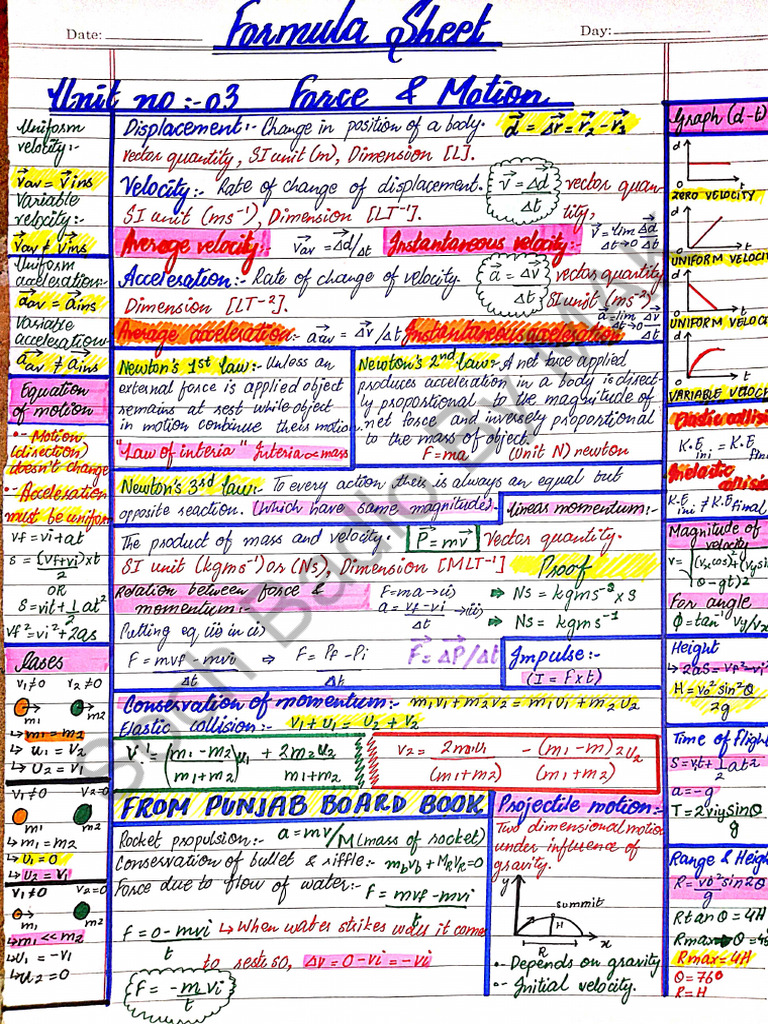 Date: Day:
Formula Sheet
Unit no:-03 Force & Motion
Uniform
velocity:-
v⃗av = v⃗ins
Variable
velocity:-
v⃗av ≠ v⃗ins
Uniform
acceleration:-
a⃗av = a⃗ins
Variable
acceleration:-
a⃗av ≠ a⃗ins
Equation
of motion
•- Motion
(direction)
doesn't change
•- Acceleration
must be uniform
vf = vi+at
s = (vf+vi)xt/2
OR
S = vit+1/2 at²
vf² = vi²+2as
Cases
v1≠0 v2≠0
m1 m2
↳ m1 = m2
↳ u1 = v2
↳ U2 = v1
v1≠0 V2=0
m1 m2
↳ m1 = m2
↳ U1 = 0
↳ U2 = V1
v1≠0 v2=0
m1 m2
↳ m1 << m2
↳ u1 = -v1
↳ u2 = 0
Displacement:- Change in position of a body. d⃗ = Δr⃗ = r⃗2 - r⃗1
vector quantity, SI unit (m), Dimension [L].
Velocity:- Rate of change of displacement. v⃗ = Δd⃗/Δt vector quan-
SI unit (ms⁻¹), Dimension [LT⁻¹]. tity,
Average velocity:- v⃗av = Δd⃗/Δt Instantaneous velocity:- v⃗ = lim Δt→0 Δd⃗/Δt
Acceleration:- Rate of change of velocity. a⃗ = Δv⃗/Δt vector quantity
Dimension [LT⁻²]. SI unit (ms⁻²)
Average acceleration:- a⃗av = Δv⃗/Δt Instantaneous acceleration a⃗ = lim Δt→0 Δv⃗/Δt
Newton's 1st law:- Unless an
external force is applied object
remains at rest while object
in motion continue their motion.
"Law of interia" Interia ∝ mass
Newton's 2nd law:- A net force applied
produces acceleration in a body is direct-
ly proportional to the magnitude of
net force and inversely proportional
to the mass of object.
F=ma (Unit N) newton
Newton's 3rd law:- To every action their is always an equal but
opposite reaction. (which have same magnitude). Linear momentum:-
The product of mass and velocity. P⃗ = mv⃗ Vector quantity.
SI unit (kgms⁻¹) or (Ns), Dimension [MLT⁻¹] Proof
Relation between force &
momentum:-
F=ma → (i)
a = vf-vi/Δt → (ii)
Ns = kgms⁻² x s
Ns = kgms⁻¹
Putting eq (ii) in (i)
F = mvf - mvi/Δt ⇒ F = Pf - Pi/Δt F⃗ = ΔP⃗/Δt
Impulse:-
(I = Fxt)
Conservation of momentum:- m1v1 + m2v2 = m1U1 + m2U2
Elastic collision:- v1+u1 = U2+v2
V1 = (m1-m2/m1+m2)u1 + 2m2u2/m1+m2
v2 = 2m1u1/(m1+m2) - (m1-m)2u2/(m1+m2)
FROM PUNJAB BOARD BOOK
Rocket propulsion:- a = mv/M (mass of rocket)
Conservation of bullet & riffle:- mbvb + MRVR = 0
Force due to flow of water:- F = mvf - mvi/t
F = 0 - mvi/t ↳ When water strikes wall it comes
to rest so, Δv = 0 - vi = -vi
F = -m vi/t
Projectile motion:-
Two dimensional motion
under influence of
gravity.
y
summit
H
R
x
•- Depends on gravity
•- Initial velocity.
Graph (d-t)
d
o t
ZERO VELOCITY
d
o t
UNIFORM VELOCITY
d
o t
UNIFORM VELOC
d
o t
VARIABLE VELOC
Elastic collisi
K.E ini = K.E fin
Inelastic
collision
K.E ini ≠ K.E final
Magnitude of
velocity
For angle
Φ = tan⁻¹ vy/vx
Height
↳ 2aS = vf² - vi²
H = vo² sin²θ/2g
Time of Flight
S = vit + 1/2 at²
a = -g
T = 2viysinθ/g
Range & Heigh
R = vo² sin2θ/g
R tanθ = 4H
Rmax → θ = 45
Rmax = 4H
θ = 76°
R = H